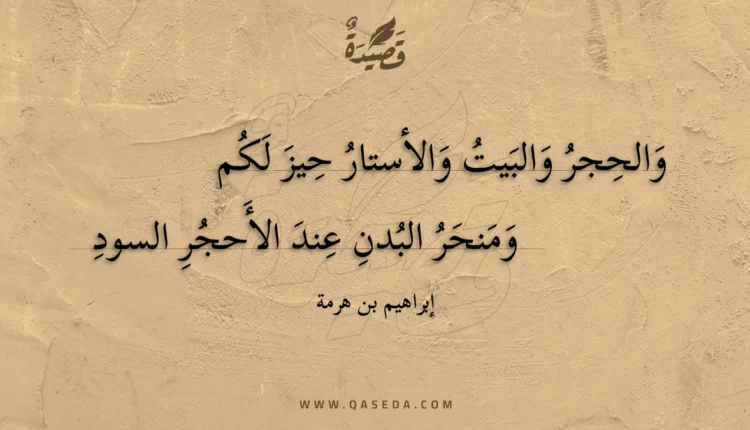 قَصِيْدَةٌ
وَالحِجرُ وَالبَيتُ وَالأستارُ حِيزَ لَكُم
وَمَنحَرُ البُدنِ عِندَ الأَحجُرِ السودِ
إبراهيم بن هرمة
WWW.QASEDA.COM